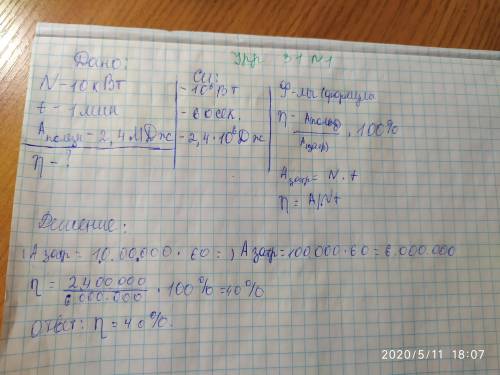 Упр. 31 №1
Дано:
N-10кВт
t-1мин
Aполезн-2,4 МДж
η-?
Си:
-60сек.
-2,4·10⁶Дж
Ф-лы (формулы
η - Аполезн / Азатр · 100%
Aзатр = N·t
η = A/Nt
Решение:
Aзатр=100000·60=6.000.000
η = 2.400.000 / 6.000.000 · 100% =40%
Ответ: η=40%.
2020/5/11 18:07